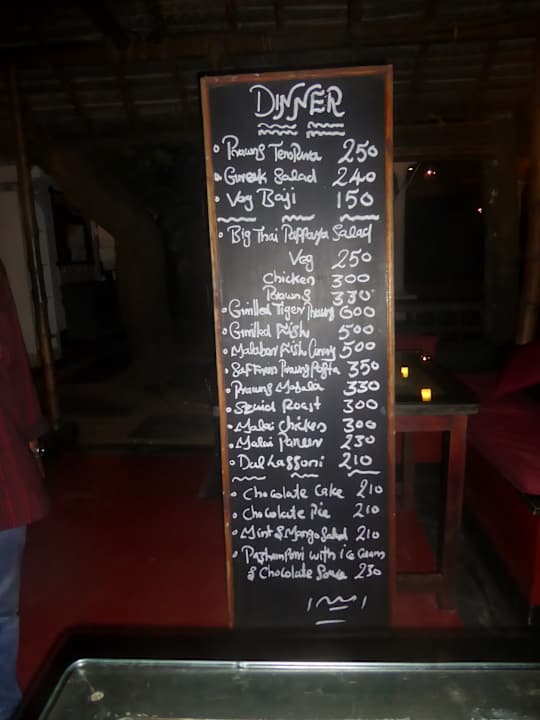 DINNER
Prawns Tempura 250
Greek Salad 240
Veg Baji 150
Big Thai Pappaya Salad
Veg 250
Chicken 300
Prawns 330
Grilled Tiger Prawns 600
Grilled Fish 500
Malabar Fish Curry 500
Saffron Prawns Pasta 350
Prawns Masala 330
Squid Roast 300
Malai Chicken 300
Malai Paneer 230
Dal Lassoni 210
Chocolate Cake 210
Chocolate Pie 210
Mint & Mango Salad 210
Pazhampori with ice Cream
& Chocolate Sauce 230